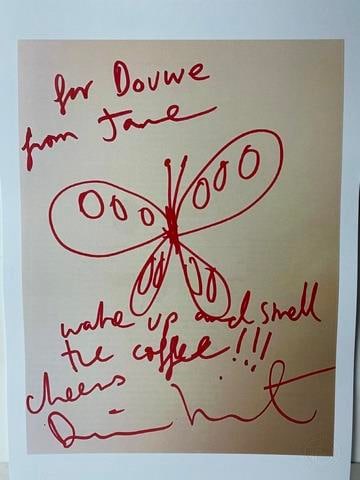 for Douwe
from Jane
wake up and smell
the coffee!!!
cheers